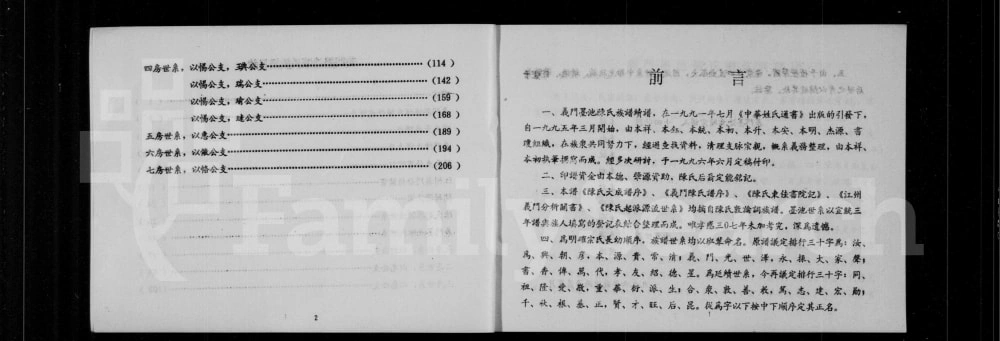 四房世系，以惕公支，琠公支……(114)
以惕公支，瑞公支……(142)
以惕公支，瑜公支……(159)
以惕公支，建公支……(168)
五房世系，以惠公支……(189)
六房世系，以公支……(194)
七房世系，以恪公支……(206)
2
前 言
一、義門墨池陈氏族譜續譜，在一九九一年七月《中華姓氏通書》出版的引發下，
自一九九五年三月開始，由本祥、本、本銳、本初、本、本安、本明、杰源、
組織，在族衆共同努力下，經過查找資料，清理支脉宗親，概系義務整理，由本祥、
本初執筆撰寫而成。經多次研討，于一九九六年六月定稿付印。
二、印譜資金由本德、源資助，陳氏后裔定能銘記。
三、本譜《陳氏文成譜序》、《義門陳氏譜序》、《陳氏東佳書院記》、《江州
義門分析關書》、《陳氏起派源流世系》均摘自陳氏敦倫詞族譜。墨池世系以宣統三
年譜與族人填寫的登記表結合整理而成。唯孝感三0七年未加考究，深爲遺憾。
四、爲明確宗氏長幼順序，族譜世系均以派輩命名。原譜議定排行三十字爲：汝、
爲、興、朝、彦，本、源、貴、常、清；義、門、光、世、澤，永、振、大、家、聲；
書、香、傳、萬、代，孝、友、紹、德、星。爲延續世系，今再議定排行三十字：同、
祖、隆、愛、敬，重、華、衍、派、生；合、衆、敦、善、教，篤、志、建、宏、勛；
千、秋、根、基、正，賢、才、旺、后、昆。後爲字以下按中下順序定其正名。